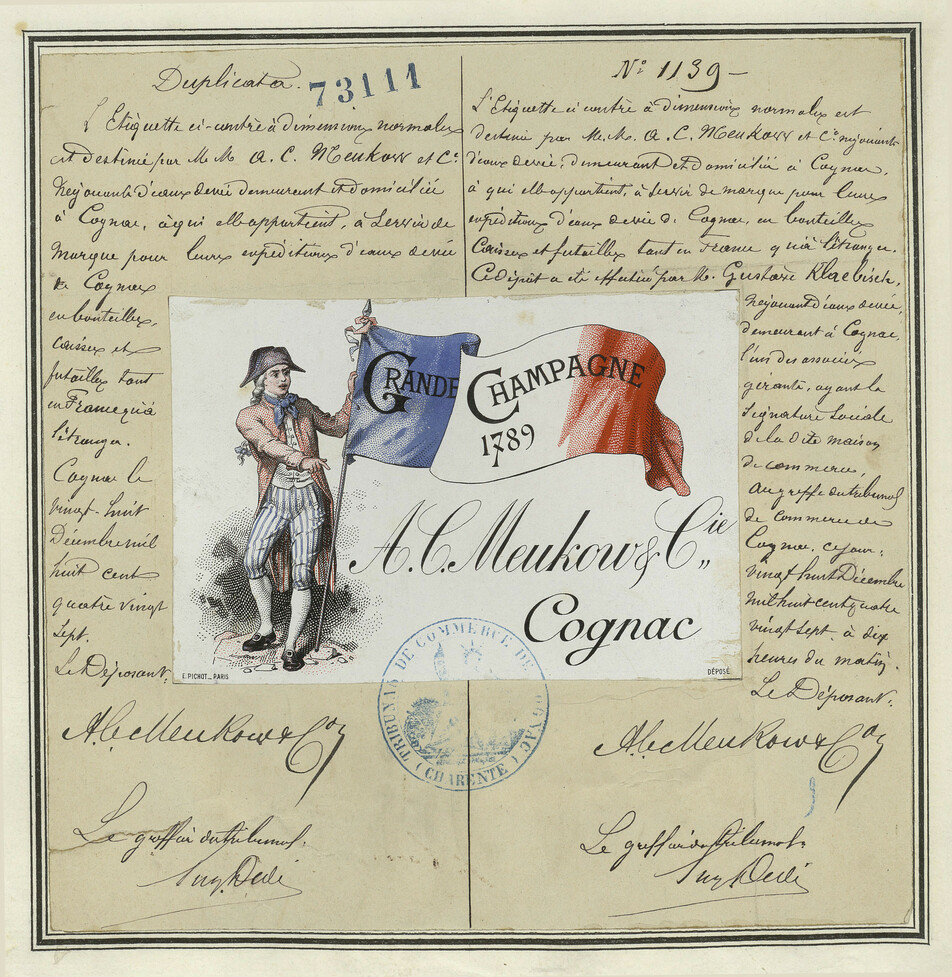 Duplicata.
73111
L'Etiquette ci-contre à dimensions normales
est destinée par M.M. A. C. Meukow et Cie
Négociants d'eaux devie demeurant et domiciliés
à Cognac, à qui elle appartient, à servir de
marque pour leurs expéditions d'eaux devie
de Cognac
en bouteilles,
caisses et
futailles tant
en France qu'à
l'étranger.
Cognac le
vingt-huit
Décembre mil
huit cent
quatre vingt
sept.
Le Déposant,
A. C. Meukow & Co
Le greffier du tribunal.
No 1139-
L'Etiquette ci contre à dimensions normales est
destinée par M.M. A. C. Meukow et Co négociants
d'eaux devie, demeurant et domiciliés à Cognac,
à qui elle appartient, à servir de marque pour leurs
expéditions d'eaux devie de Cognac, en bouteilles
Caisses et futailles tant en France qu'à l'étranger.
Ce dépôt a été effectué par M. Gustave Klaebisch,
Négociant d'eaux devie,
demeurant à Cognac,
l'un des associés
gérants, ayant la
signature sociale
de la dite maison
de commerce,
au greffe du tribunal
de commerce de
Cognac, ce jour
vingt huit Décembre
mil huit cent quatre
vingt sept, à dix
heures du matin.
Le Déposant,
A. C. Meukow & Co
Le greffier du tribunal.
GRANDE CHAMPAGNE
1789
A. C. Meukow & Cie
Cognac
E. PICHOT_PARIS
DÉPOSÉ
TRIBUNAL DE COMMERCE DE COGNAC
(CHARENTE)